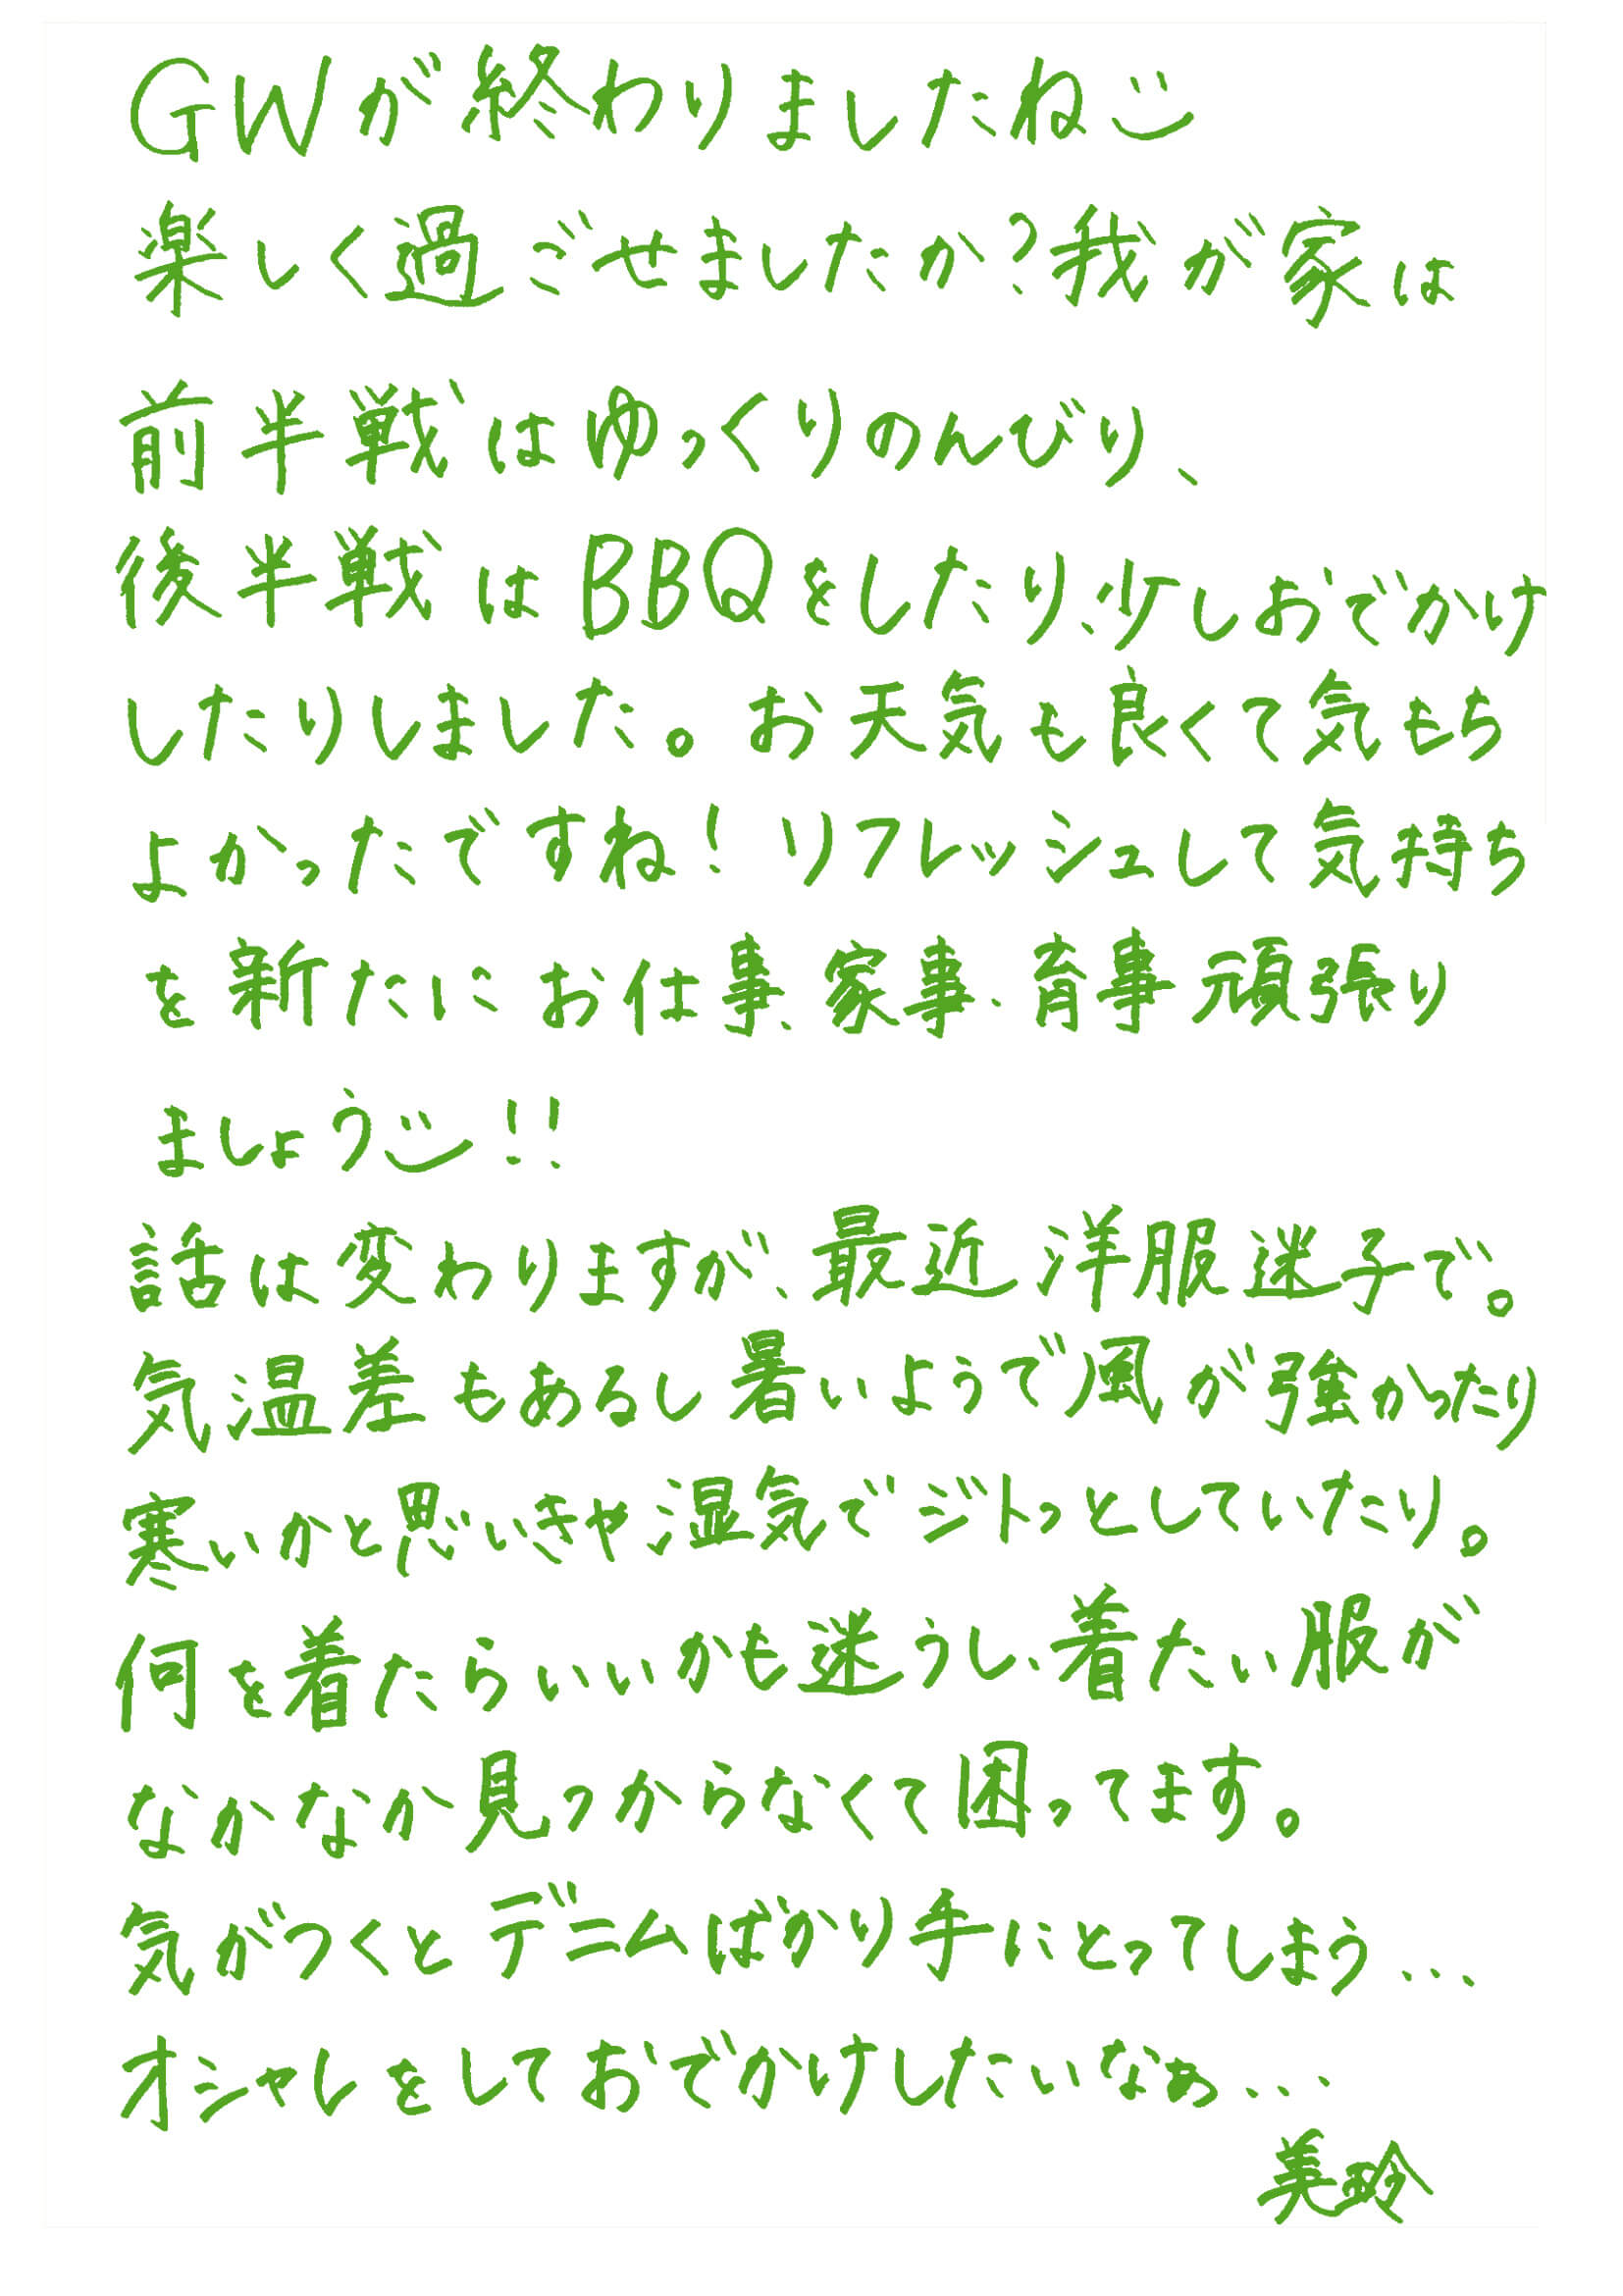 GWが終わりましたね
楽しく過ごせましたか?我が家は
前半戦はゆっくりのんびり、
後半戦はBBQをしたり、少しおでかけ
したりしました。お天気も良くて気もち
よかったですね!リフレッシュして気持ち
を新たにお仕事、家事、育事頑張り
ましょう!!
話は変わりますが、最近洋服迷子で。
気温差もあるし暑いようで風が強かったり
寒いかと思いきや湿気でジトっとしていたり。
何を着たらいいかも迷うし、着たい服が
なかなか見つからなくて困ってます。
気がつくとデニムばかり手にとってしまう...
オシャレをしておでかけしたいなぁ...
美玲